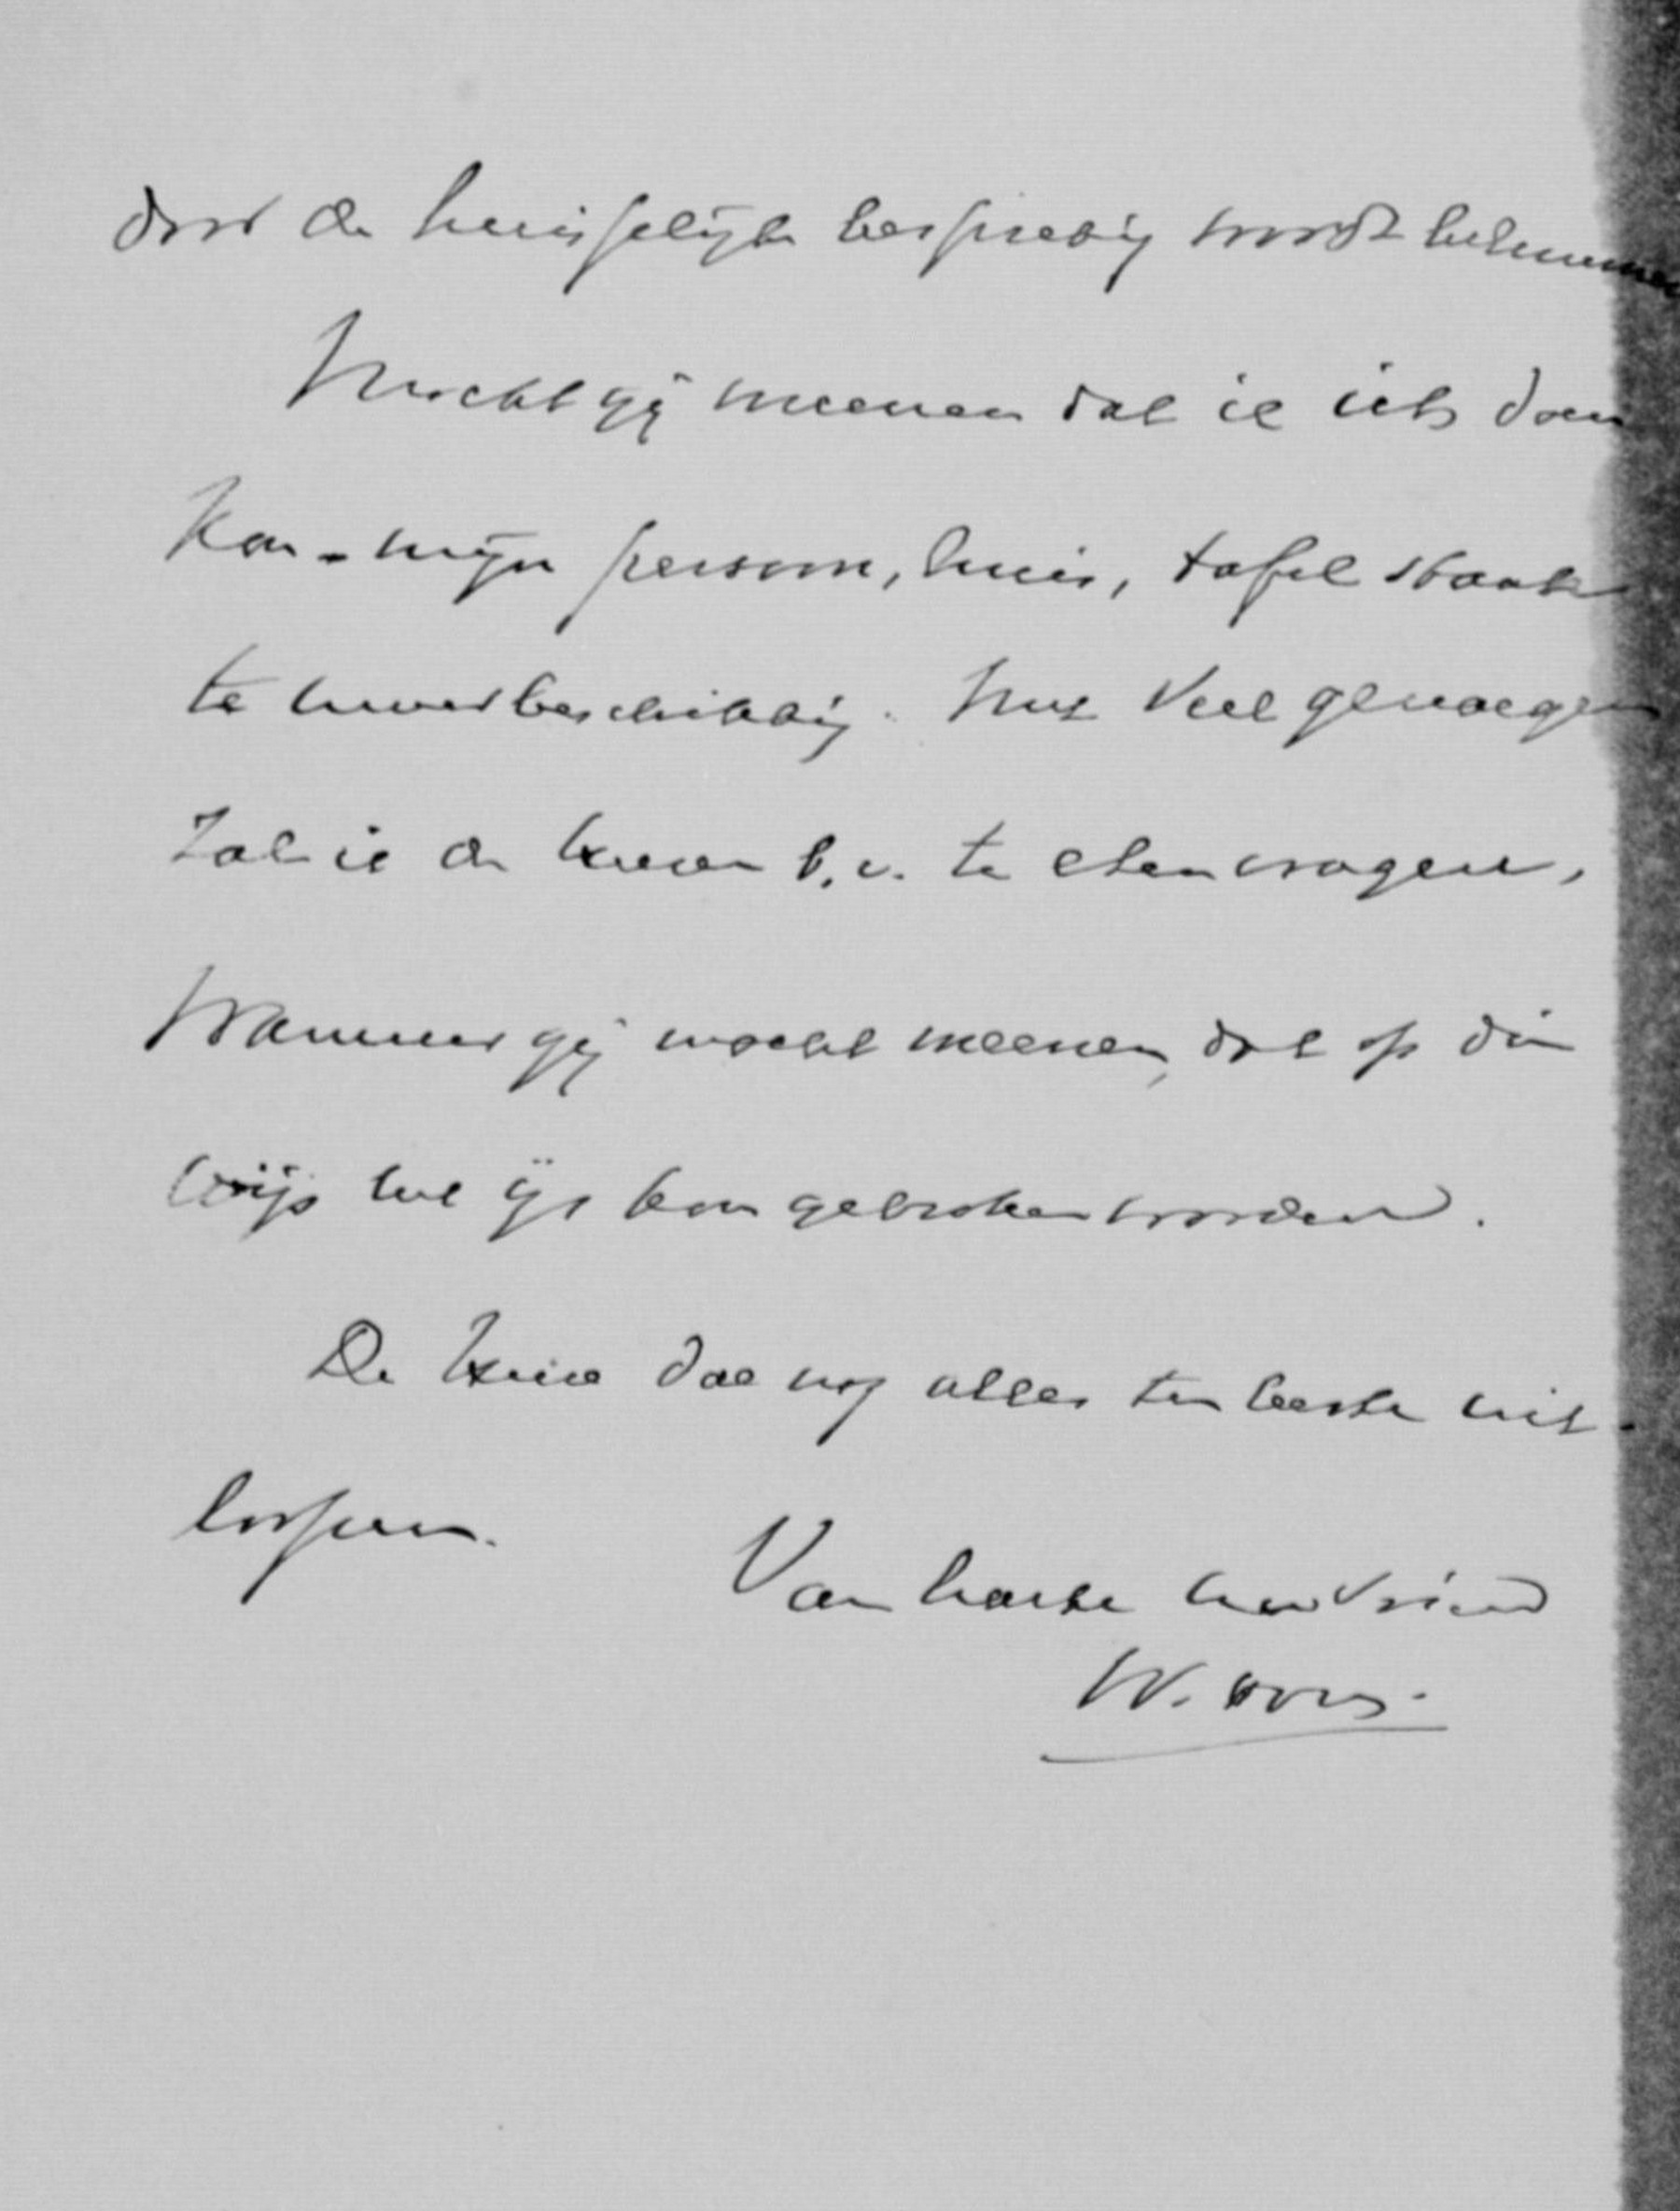 door de huisselijke bespreking wordt belemmerd
Mocht gij meenen dat ik iets doen
kan - mijn persoon, huis, tafel staat
te uwer beschikking. Met veel genoegen
zal ik de heeren b.v. te eten vragen,
Wanneer gij mocht meenen, dat op die
wijs het ijs kan gebroken worden.
De hem dat nog alles ten beste uit-
loopen.
Van harte uw vriend
W.